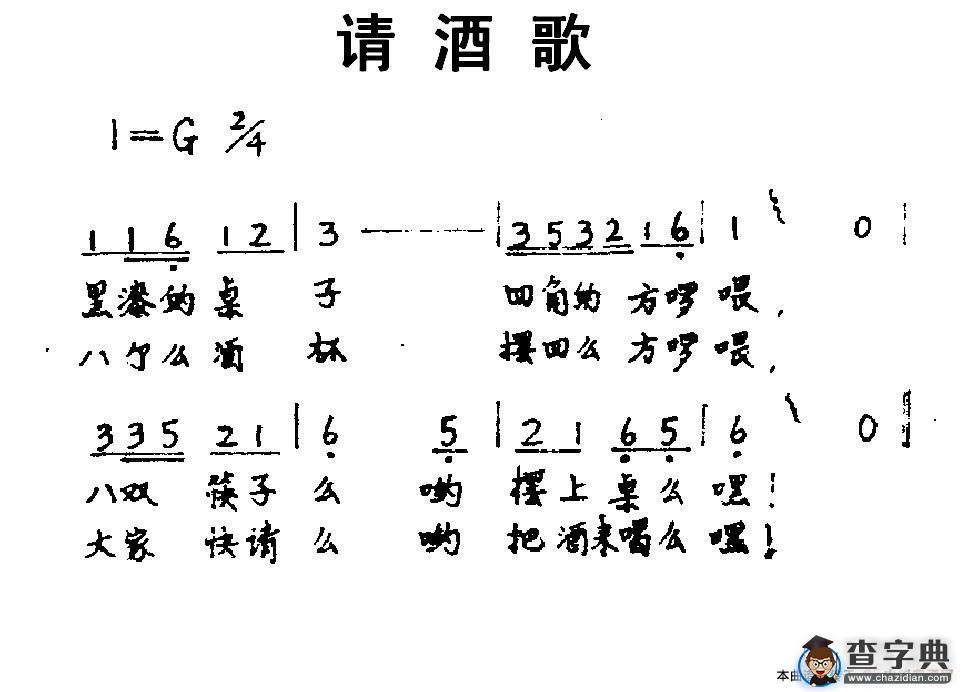 请酒歌
1=G 2/4
1 1 6 1 2 | 3 — | 3 5 3 2 1 6 | 1 0 |
黑漆的桌子 四角的方啰喂,
八个么酒杯 摆四么方啰喂,
3 3 5 2 1 | 6 5 | 2 1 6 5 | 6 0 ‖
八双筷子么哟 摆上桌么嘿!
大家快请么哟 把酒来喝么嘿!
本曲
查字典
www.chazidian.com